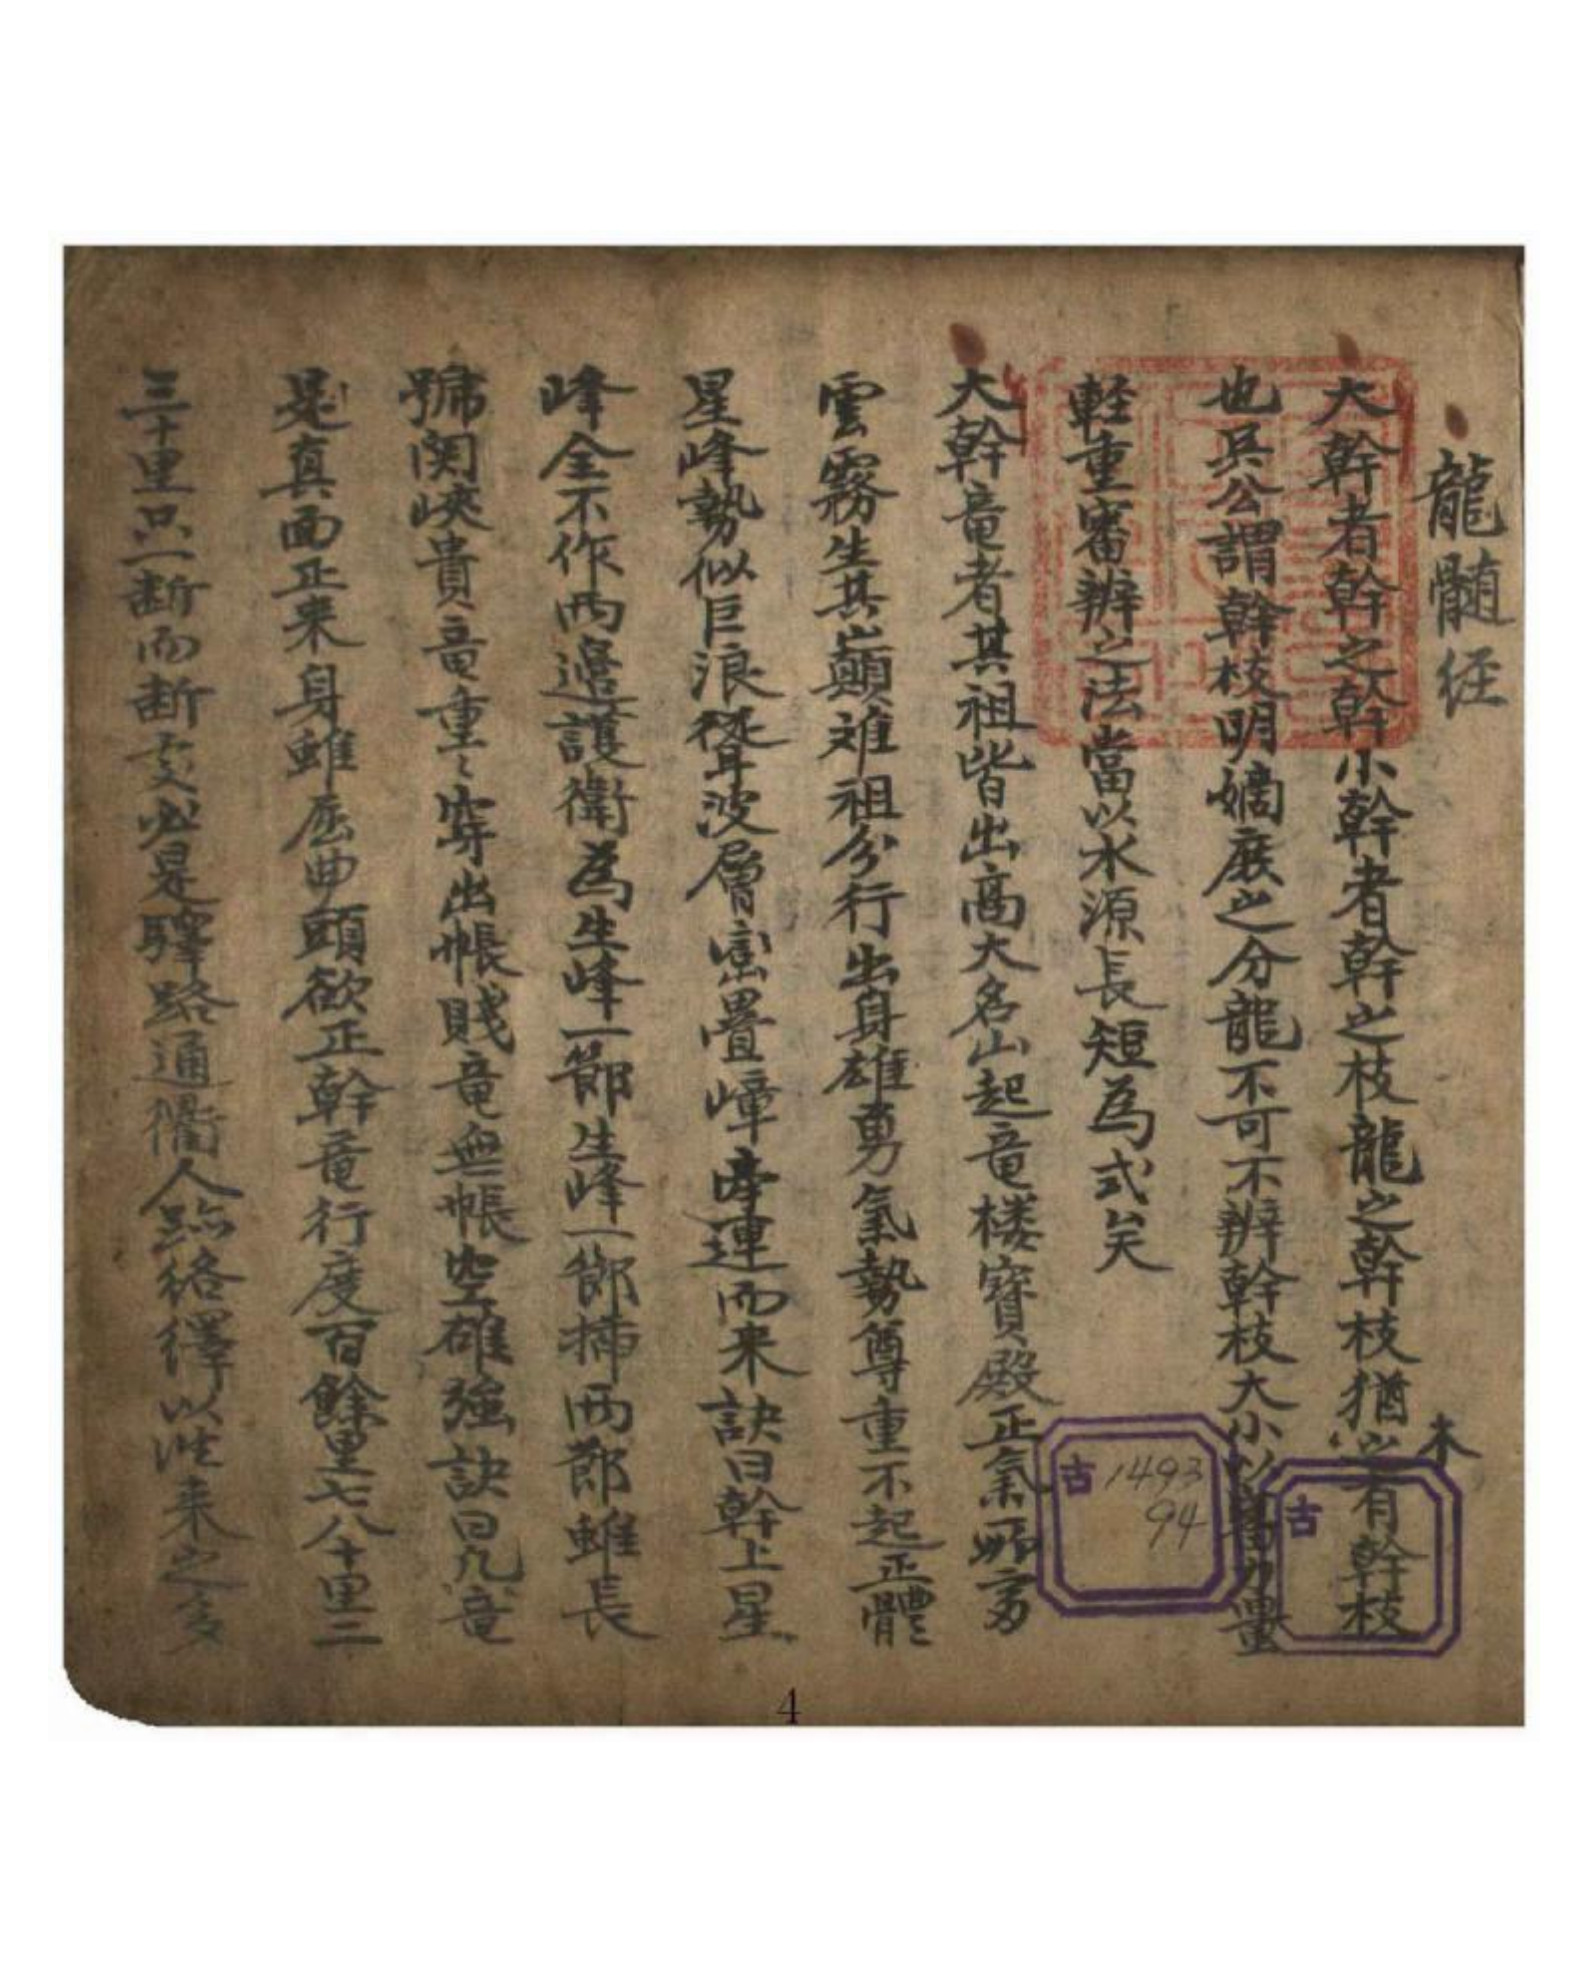 龍髓経
大幹者幹之幹小幹者幹之枝龍之幹枝猶木之有幹枝
也吳公謂幹枝明嫡庶之分龍不可不辨幹枝大小以力量
軽重審辨之法當以水源長短為式矣
大幹竜者其祖皆出高大名山起竜楼寶殿正氣所
雲霧生其山巔雖祖分行出身雄勇氣勢尊重不起正體
星峰勢似巨浪從耳波層巒疊嶂牽連而来訣曰幹上星
峰全不作両邊護衛為生峰一節生峰一節揷両節雖長
號関峽貴竜重〻穿出帳賤竜無帳空雄強訣曰凢竜
是真面正来身雖屈曲頭欲正幹竜行度百餘里七八十里二
三十里只一断而断處必是驛路通衢人跡絡繹以往来之多
古 1493
94
古
4